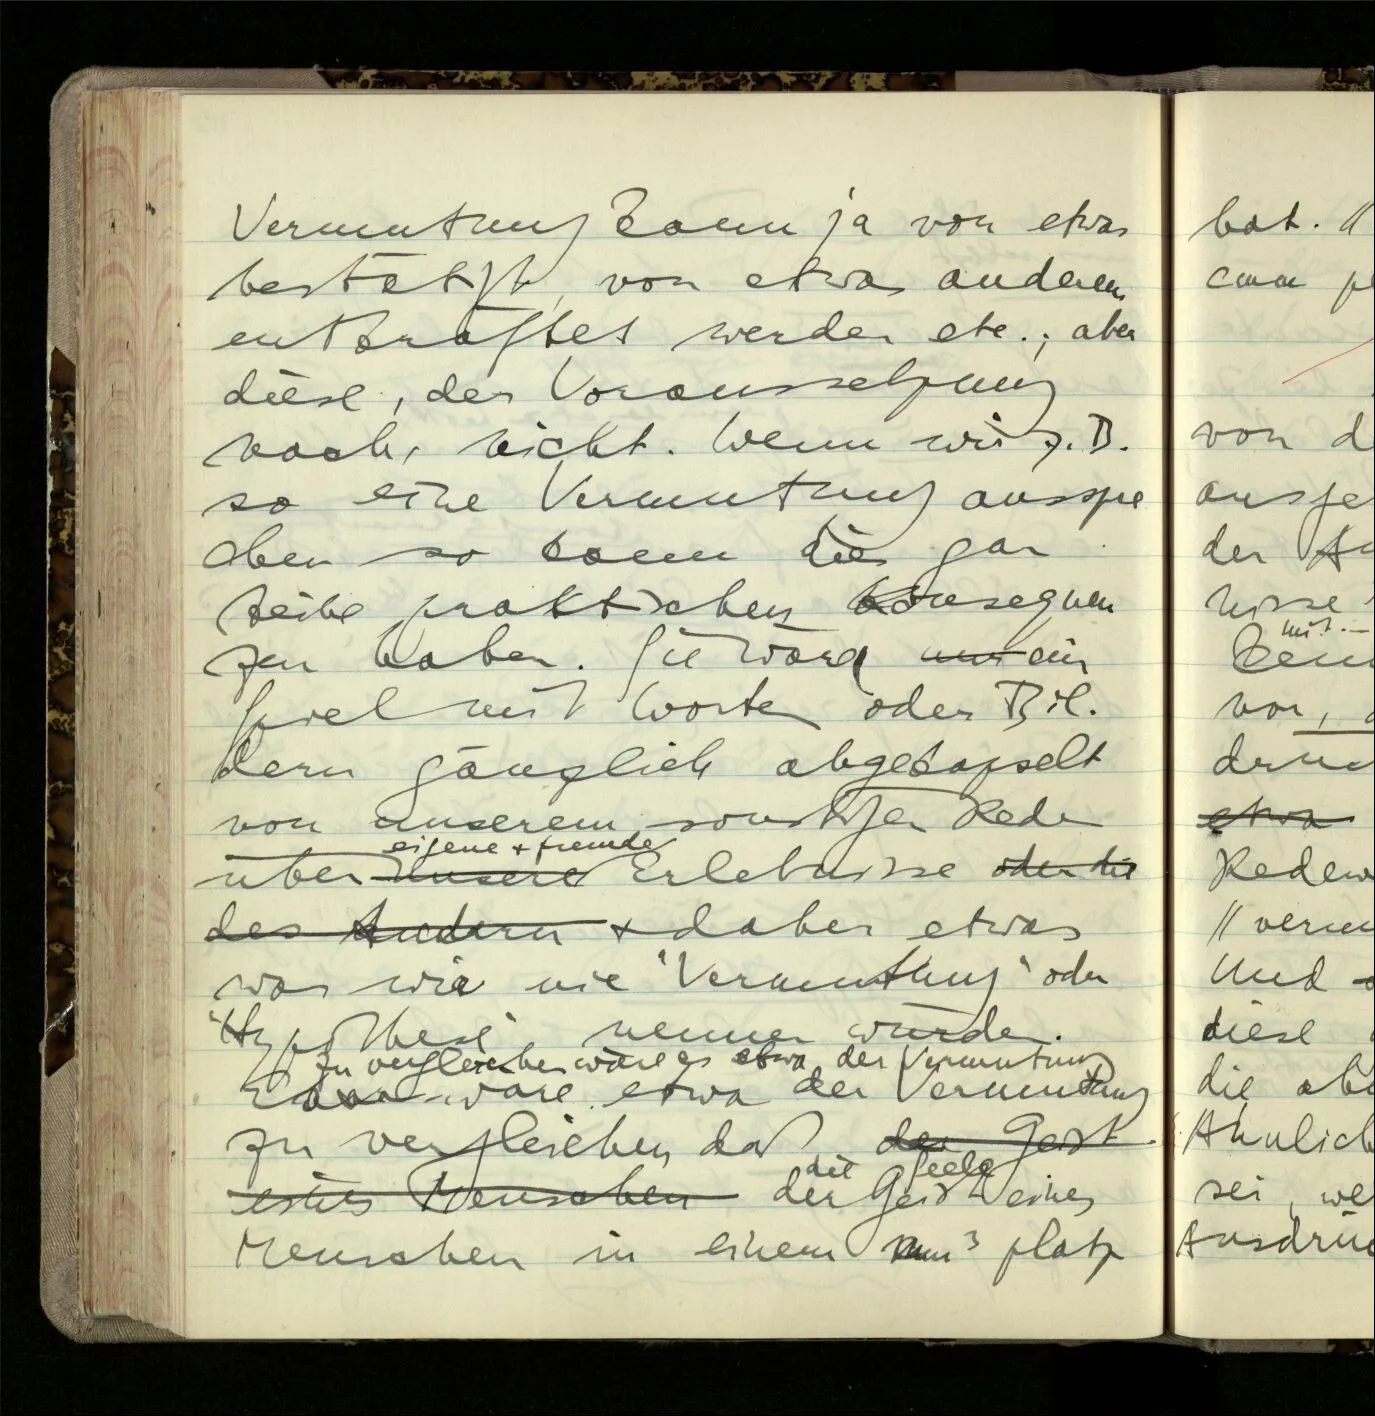 Vermutung kann ja von etwas
bestätigt, von etwas anderem
entkräftet werden etc.; aber
diese, der Voraussetzung
nach, nicht. Wenn wir z.B.
so eine Vermutung ausspre
chen so kann die gar
keine praktischen Konsequen
zen haben. Sie wäre nur ein
Spiel mit Worten oder Bil-
dern gänzlich abgekapselt
von unserem sonstigen Reden
eigene + fremde
über unsere Erlebnisse oder die
des Andern + daher etwas
was wir nie 'Vermutung' oder
'Hypothese' nennen würden.
Zu vergleichen wäre es etwa der Vermutung
wäre etwa der Vermutung
zu vergleichen daß der Geist
die Seele
eines Menschen der Geist eines
Menschen in einem mm³ platz
hat. //
von d
der
vor,
etwa
//
Und
diese
die
Ähnlich
sei, we
Ausdrü